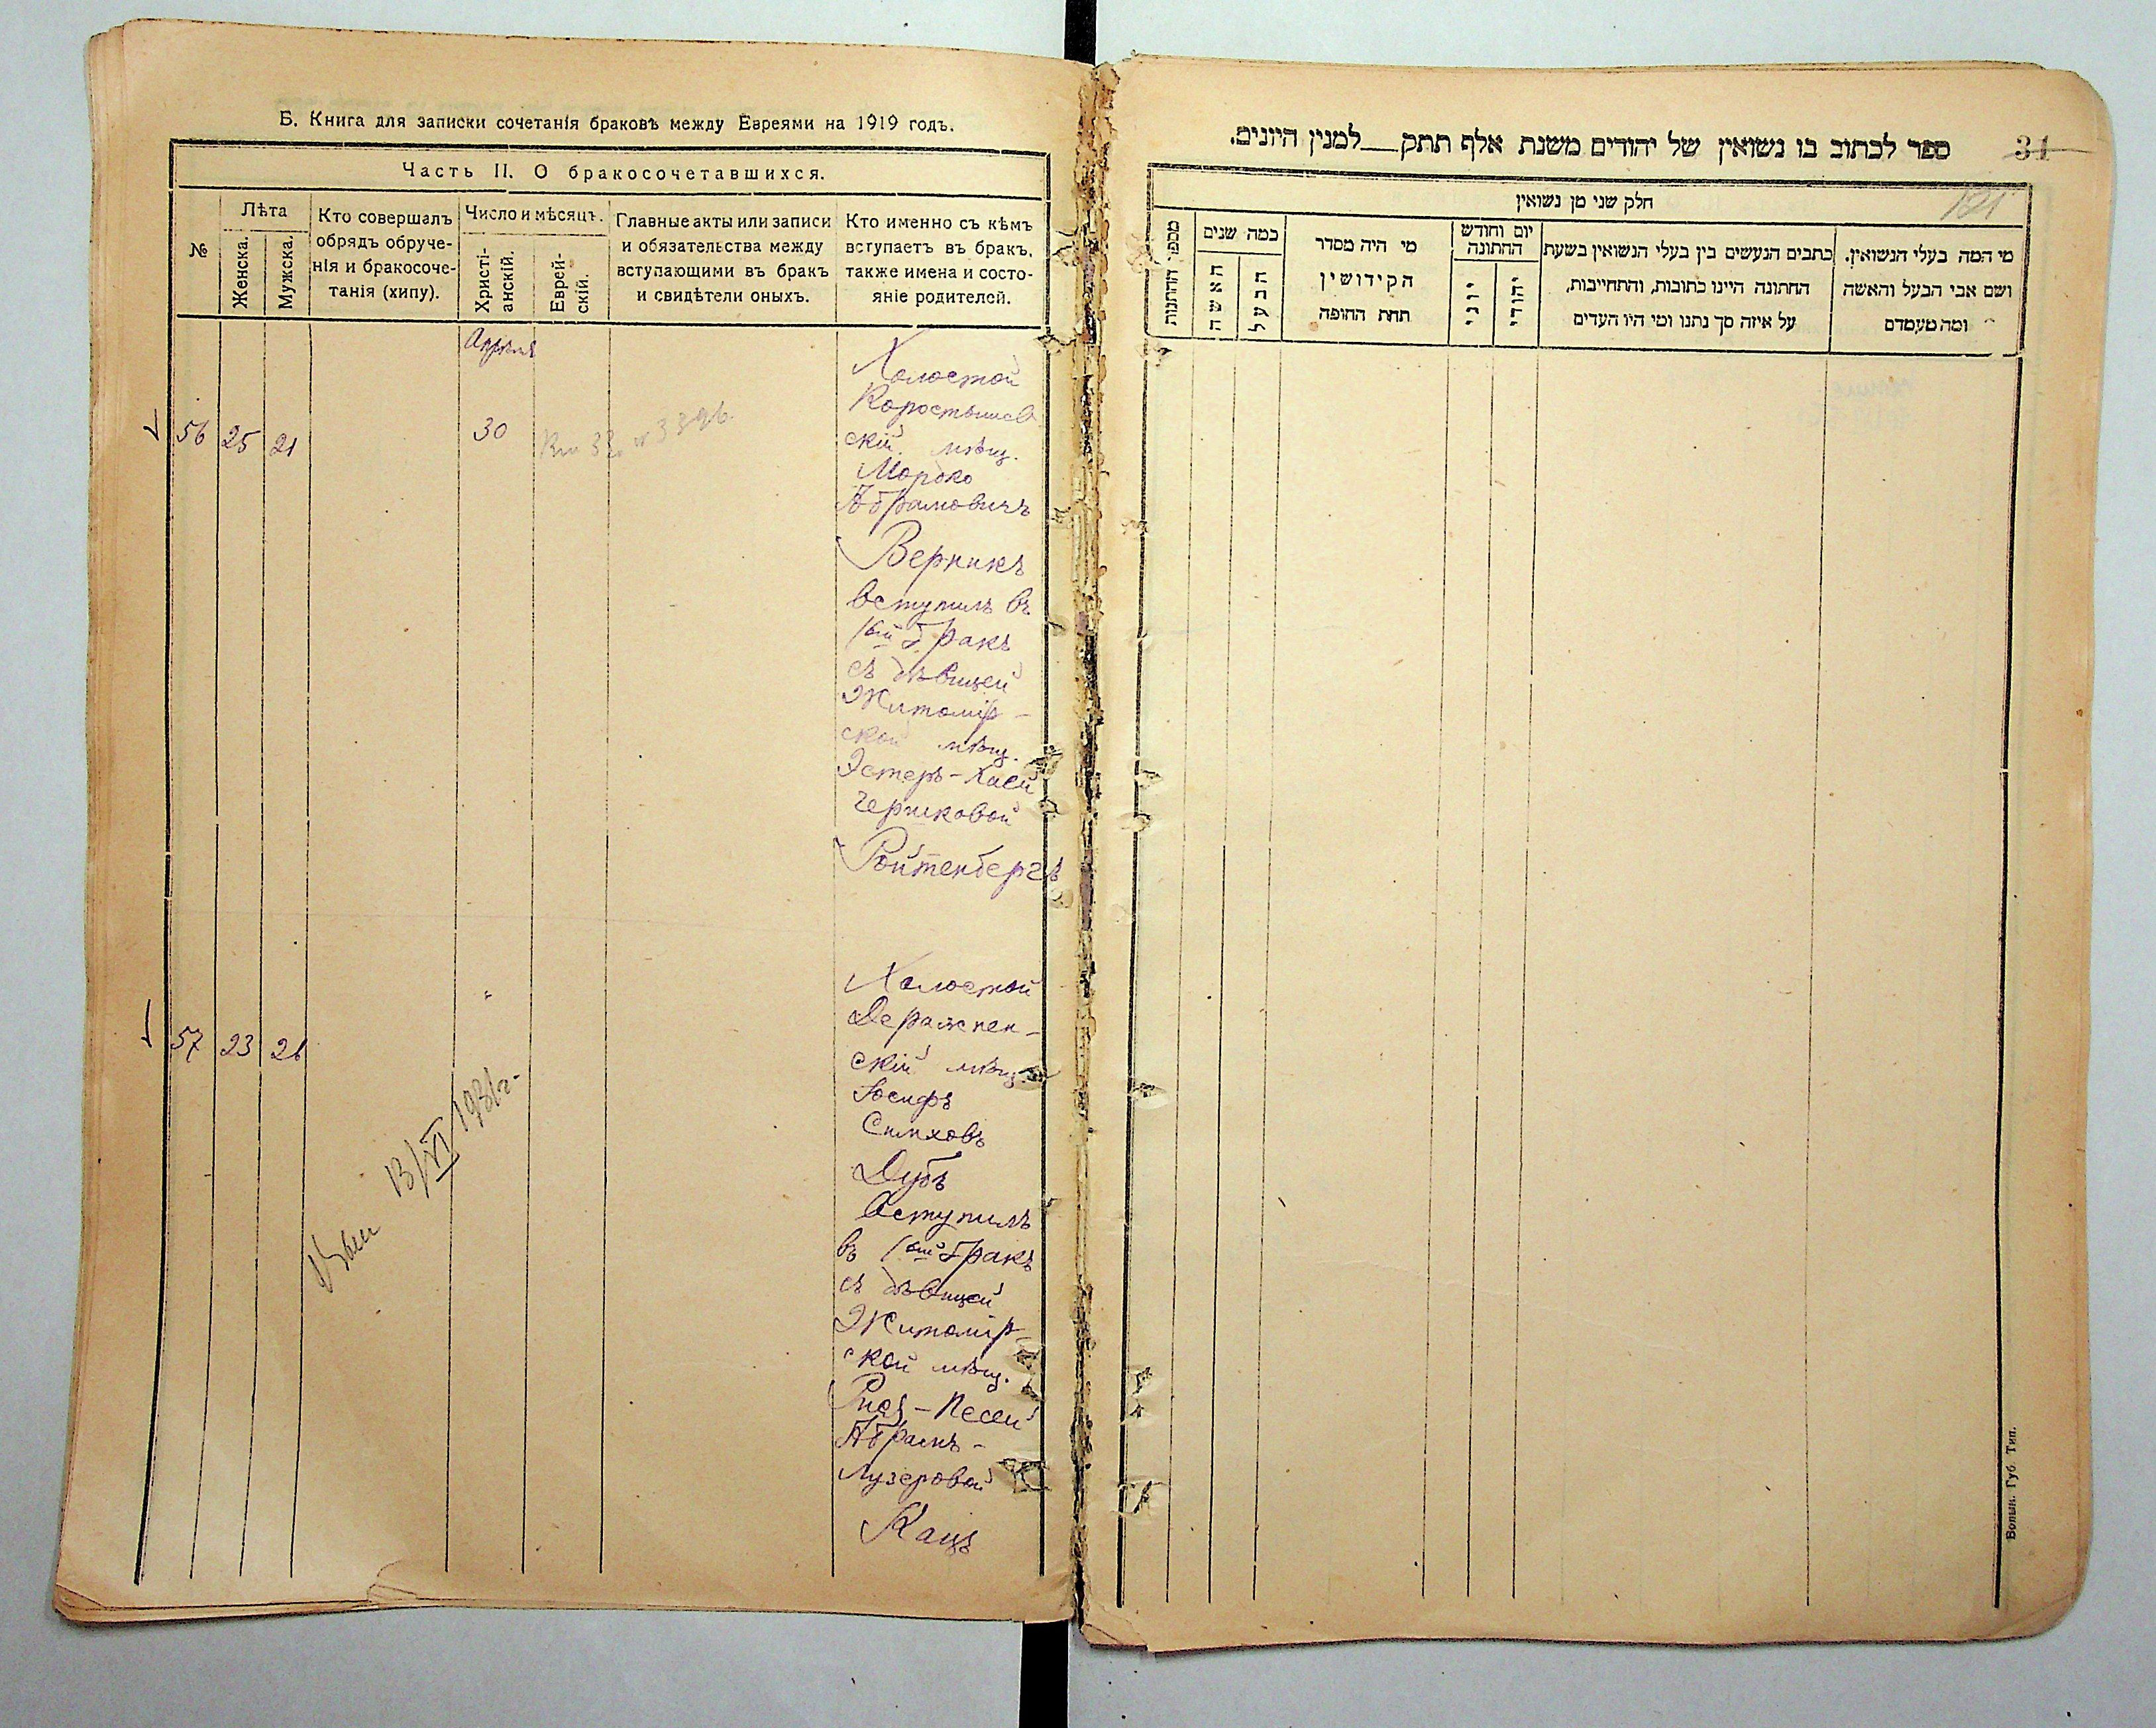 Б. Книга для записки сочетанія браковъ между Евреями на 1919 годъ.
Часть II. О бракосочетавшихся.
№
Лѣта
Женска.
Мужска.
Кто совершалъ
обрядъ обруче-
нія и бракосоче-
танія (хипу).
Число и мѣсяцъ.
Христі-
анскій.
Еврей-
скій.
Главные акты или записи
и обязательства между
вступающими въ бракъ
и свидѣтели оныхъ.
Кто именно съ кѣмъ
вступаетъ въ бракъ,
также имена и состо-
яніе родителей.
Апрѣля
56 25 21 30
Холостой
Коростышев
скій мѣщ.
Мордко
Абрамовичъ
Верникъ
вступилъ въ
1ый бракъ
съ дѣвицей
Житомір-
ской мѣщ.
Эстеръ-Хаей
Гершковой
Ройтенбергъ
57 23 21 "
Холостой
Деражнен-
скій мѣщ.
Іосифъ
Симховъ
Дубъ
вступилъ
въ 1ый бракъ
съ дѣвицей
Житомір-
ской мѣщ.
Песей
Абрамъ-
Лузеровой
Кацъ
13/VI 1931г.
ספר לכתוב בו נשואין של יהודים משנת אלף תתק___למנין היונים.
31
121
חלק שני מן נשואין
מספר החתונות
כמה שנים
האשה
הבעל
מי היה מסדר
הקידושין
תחת החופה
יום וחודש
החתונה
יוני
יהודי
כתבים הנעשים בין בעלי הנשואין בשעת
החתונה היינו כתובות, והתחייבות,
על איזה סך נתנו ומי היו העדים
מי המה בעלי הנשואין.
ושם אבי הבעל והאשה
ומה מעמדם
Волын. Губ. Тип.